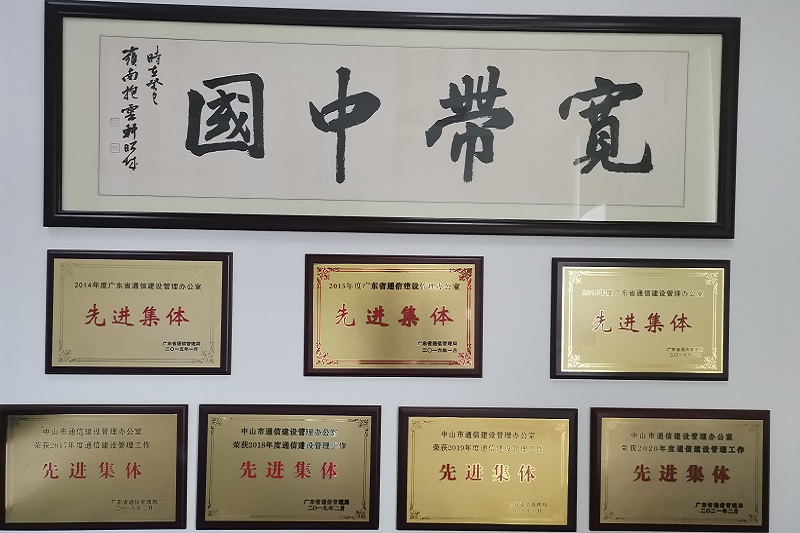 寬帶中國
時在癸巳
嶺南抱雲軒
2014年度广东省通信建设管理办公室
先进集体
广东省通信管理局
二〇一五年一月
2015年度广东省通信建设管理办公室
先进集体
广东省通信管理局
二〇一六年一月
2016年度广东省通信建设管理办公室
先进集体
广东省通信管理局
二〇一七年一月
中山市通信建设管理办公室
荣获2017年度通信建设管理工作
先进集体
广东省通信管理局
二〇一八年二月
中山市通信建设管理办公室
荣获2018年度通信建设管理工作
先进集体
广东省通信管理局
二〇一九年二月
中山市通信建设管理办公室
荣获2019年度通信建设管理工作
先进集体
广东省通信管理局
中山市通信建设管理办公室
荣获2020年度通信建设管理工作
先进集体
广东省通信管理局
二〇二一年二月